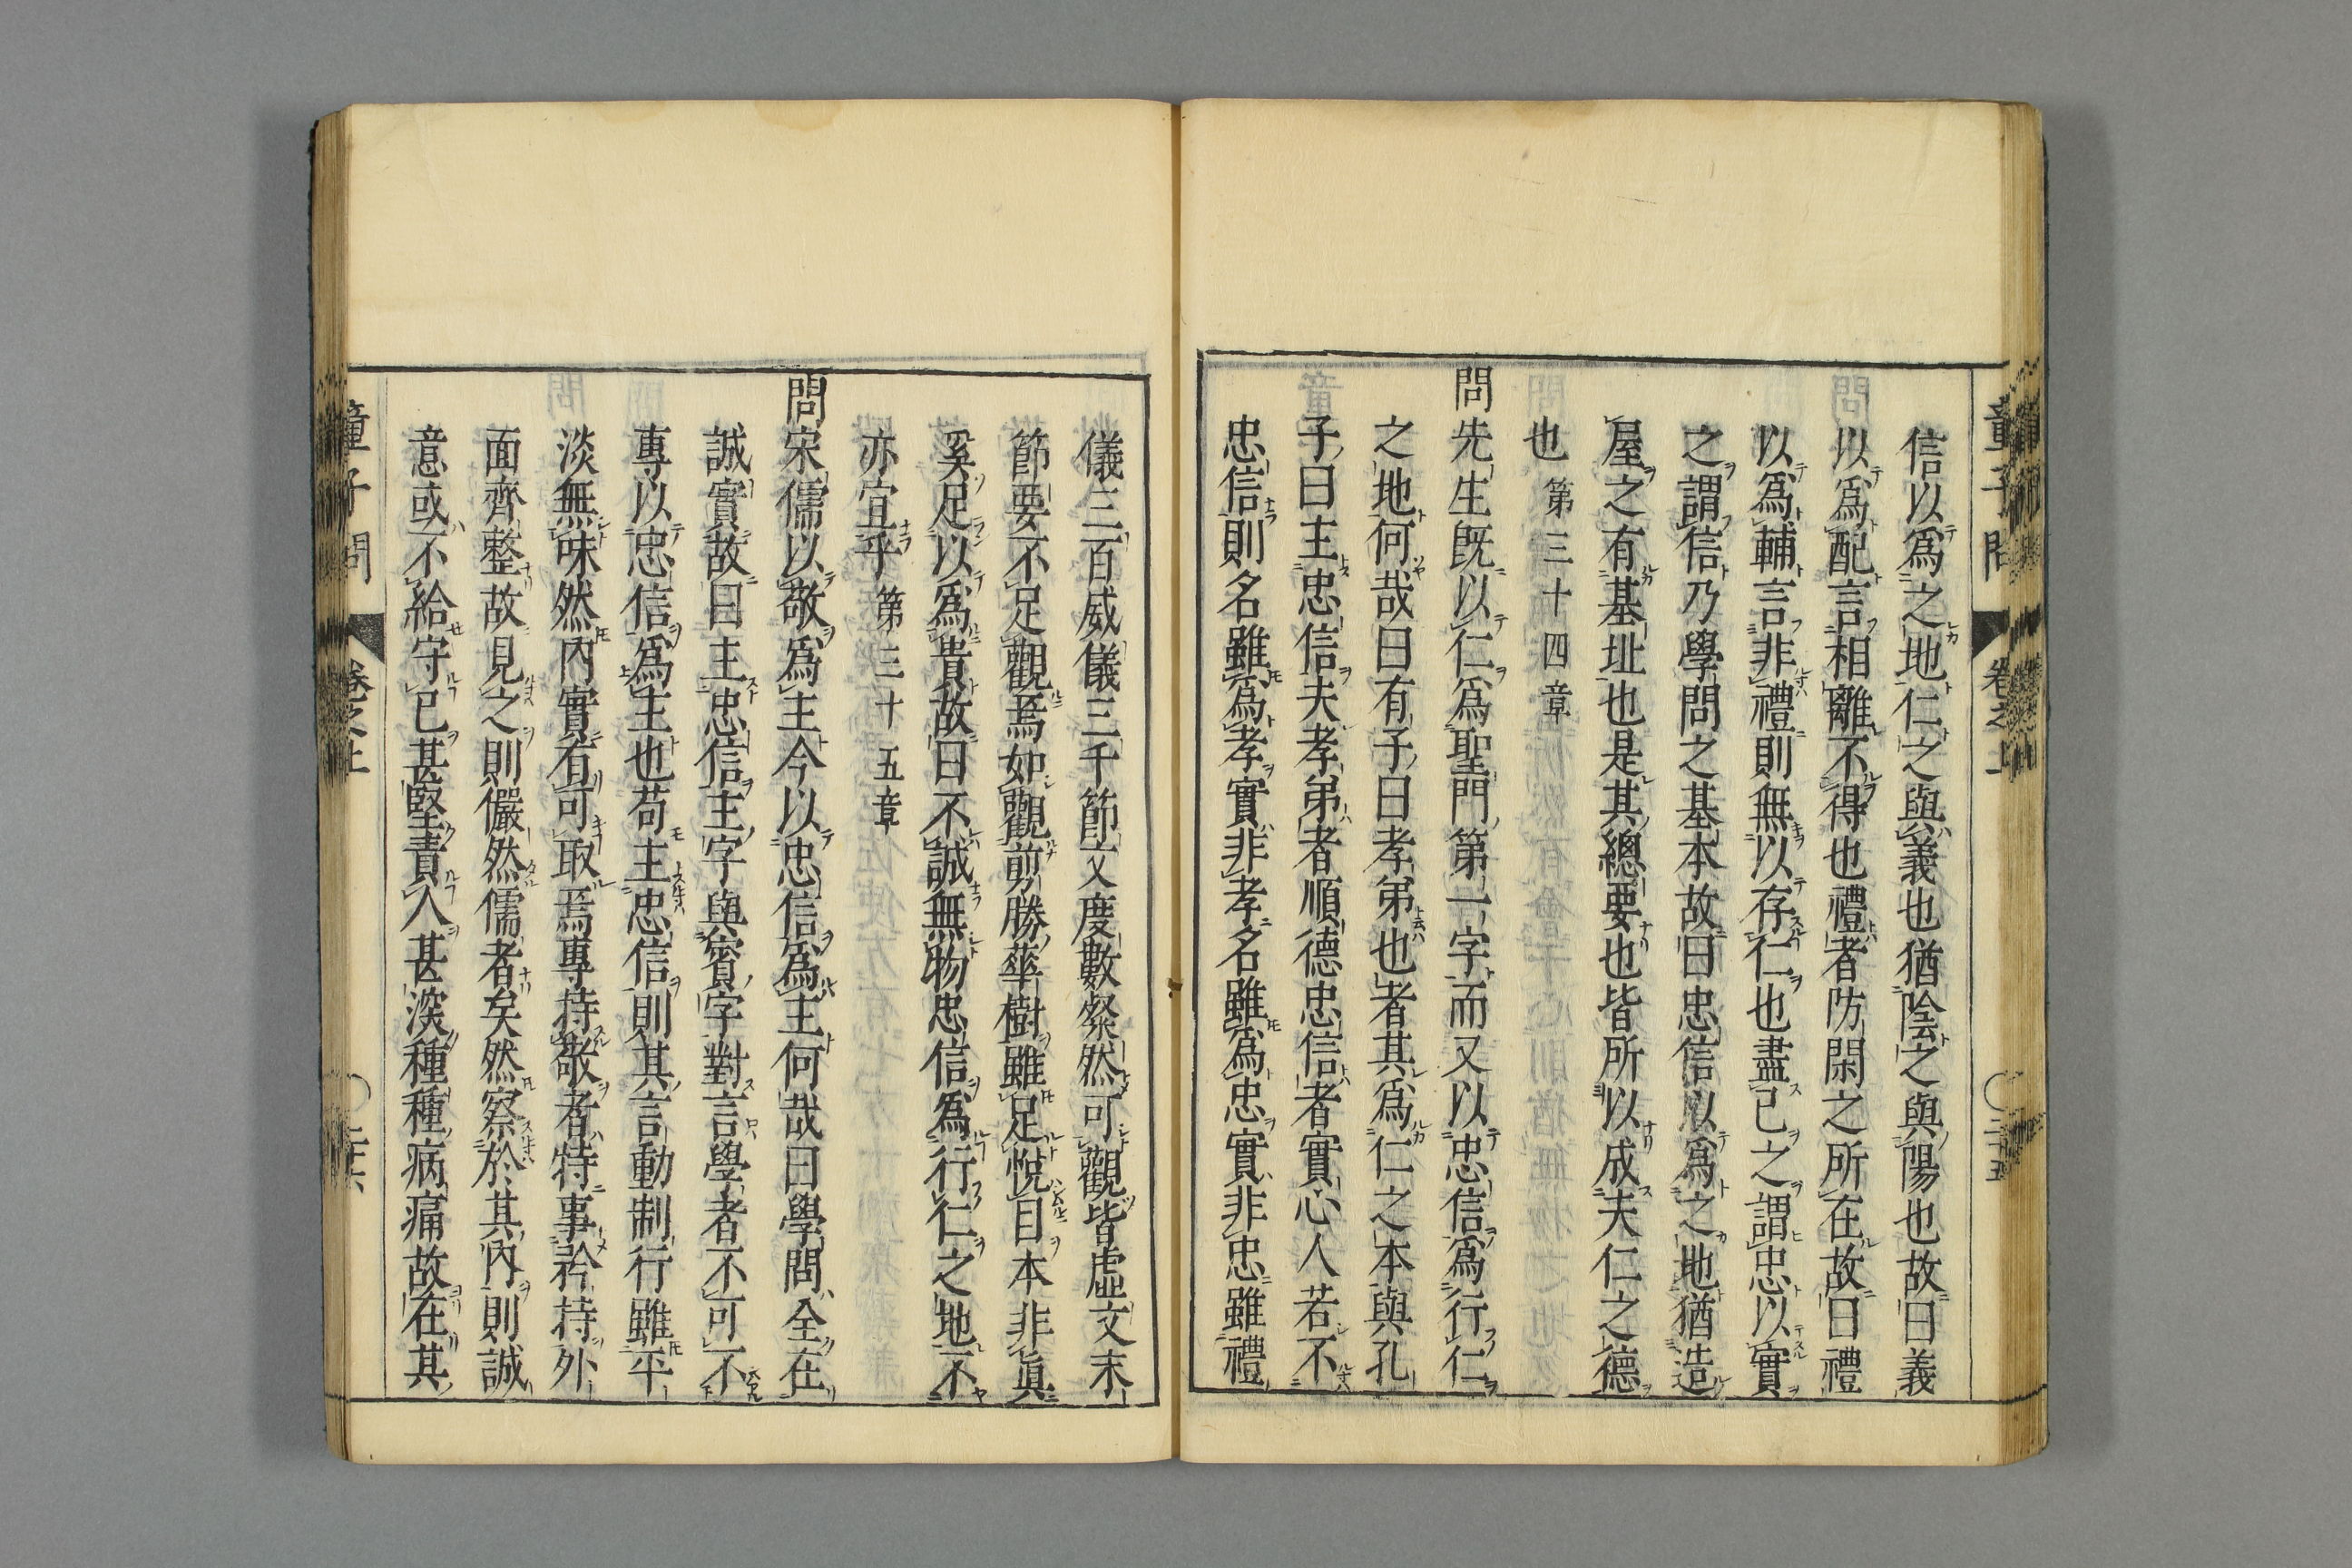 童子問 卷之上 二十五
信以爲之地仁之與義也猶陰之與陽也故曰義
以爲配言相離不得也禮者防閑之所在故曰禮
以爲輔言非禮則無以存仁也盡己之謂忠以實
之謂信乃學問之基本故曰忠信以爲之地猶造
屋之有基址也是其總要也皆所以成夫仁之德
也 第三十四章
問先生既以仁爲聖門第一字而又以忠信爲行仁
之地何哉曰有子曰孝弟也者其爲仁之本與孔
子曰主忠信夫孝弟者順德忠信者實心人若不
忠信則名雖爲孝實非孝名雖爲忠實非忠雖禮
儀三百威儀三千節文度數粲然可觀皆虛文末
節要不足觀焉如觀剪勝華樹雖足悅目本非眞
奚足以爲貴故曰不誠無物忠信爲行仁之地不
亦宜乎 第三十五章
問宋儒以敬爲主今以忠信爲主何哉曰學問全在
誠實故曰主忠信主字與賓字對言學者不可不
專以忠信爲主也苟主忠信則其言動制行雖平
淡無味然內實有可取焉專持敬者特事矜持外
面齊整故見之則儼然儒者矣然察於其內則誠
意或不給守己甚堅責人甚深種種病痛故在其
童子問 卷之上